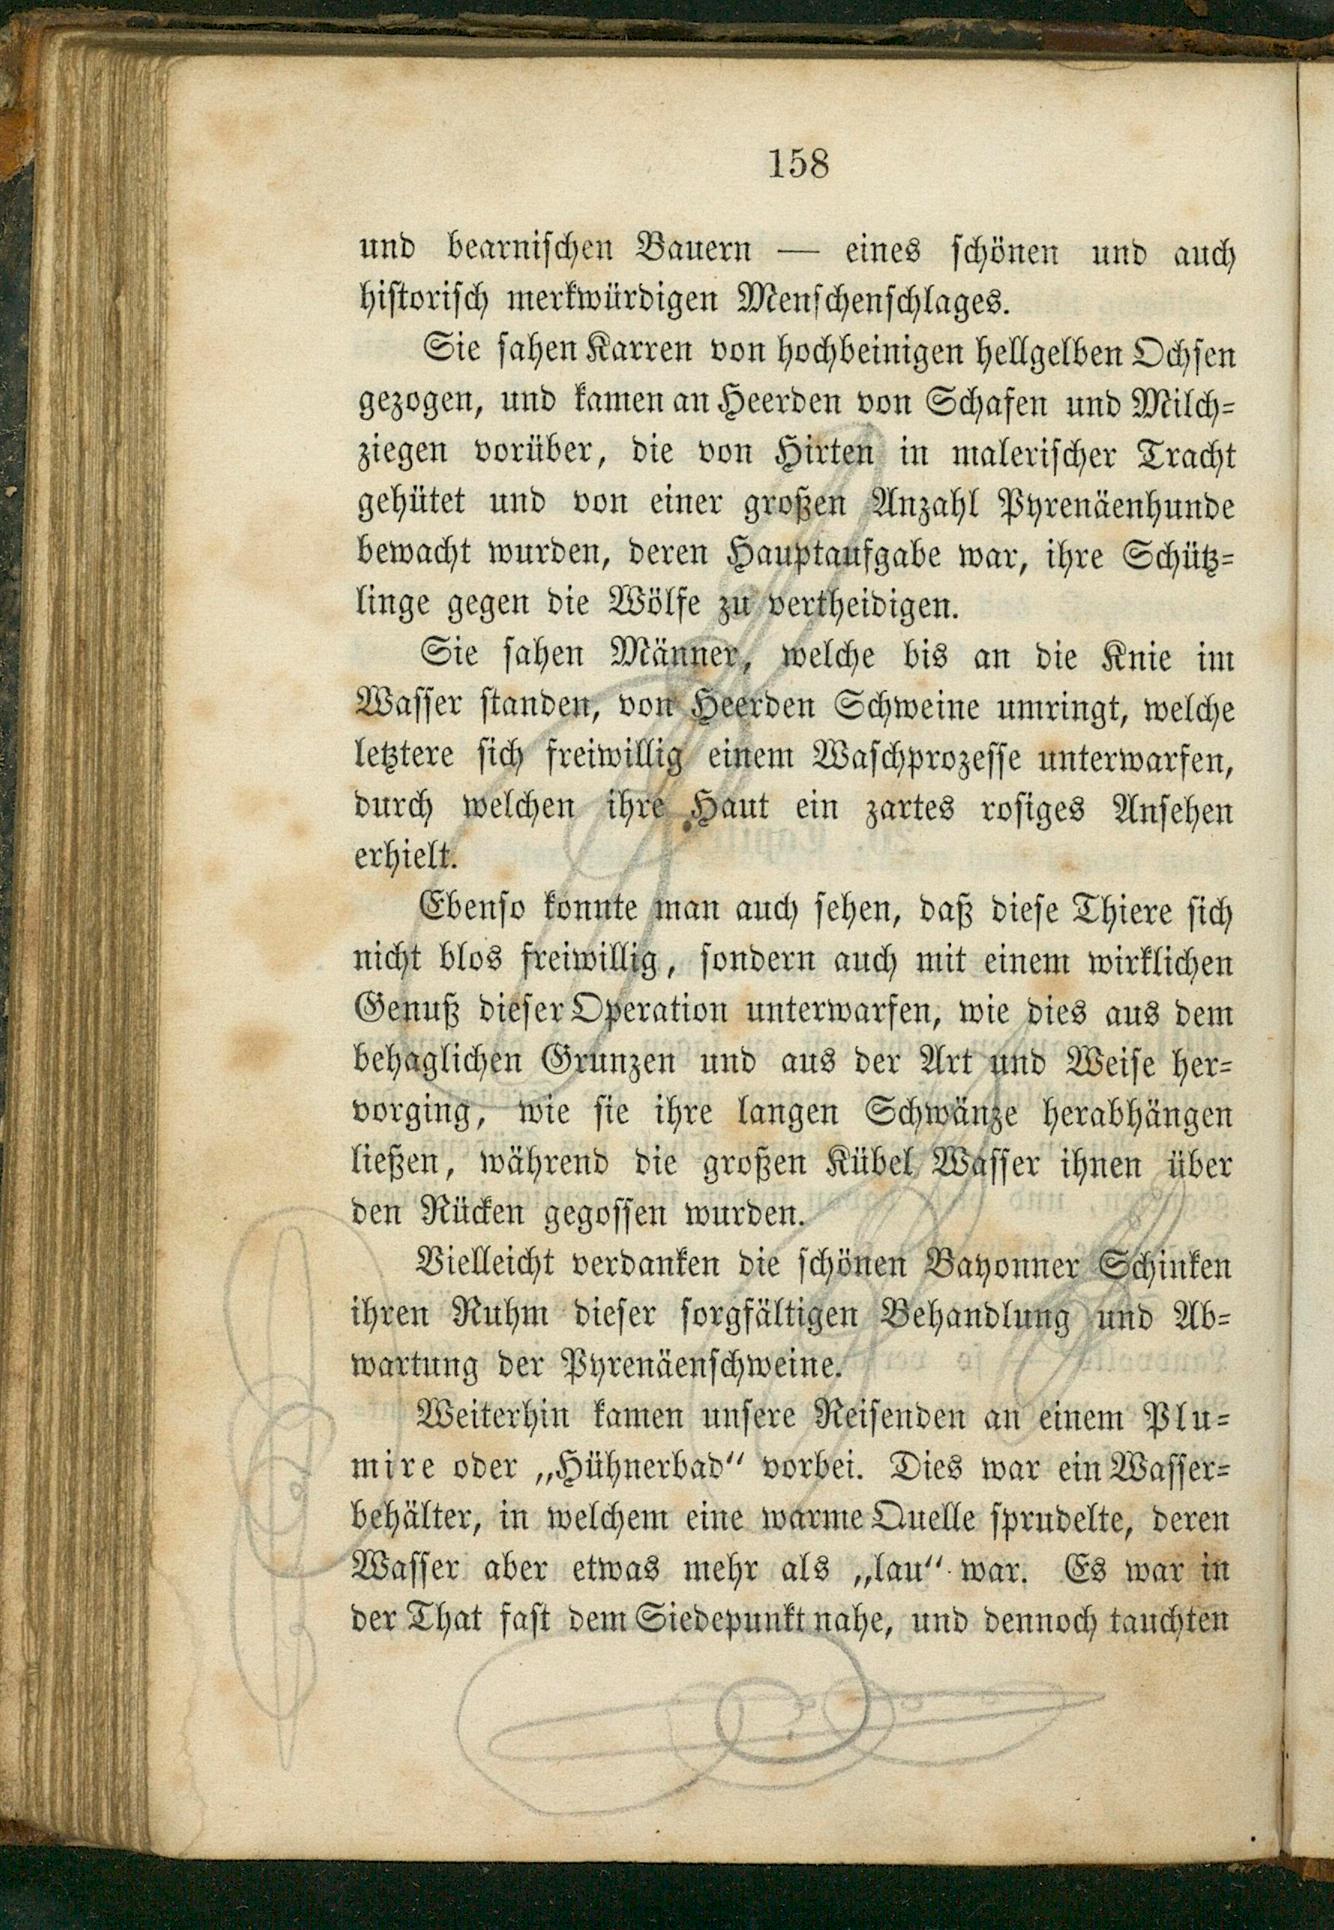 158
und bearnischen Bauern — eines schönen und auch
historisch merkwürdigen Menschenschlages.
Sie sahen Karren von hochbeinigen hellgelben Ochsen
gezogen, und kamen an Heerden von Schafen und Milch=
ziegen vorüber, die von Hirten in malerischer Tracht
gehütet und von einer großen Anzahl Pyrenäenhunde
bewacht wurden, deren Hauptaufgabe war, ihre Schütz=
linge gegen die Wölfe zu vertheidigen.
Sie sahen Männer, welche bis an die Knie im
Wasser standen, von Heerden Schweine umringt, welche
letztere sich freiwillig einem Waschprozesse unterwarfen,
durch welchen ihre Haut ein zartes rosiges Ansehen
erhielt.
Ebenso konnte man auch sehen, daß diese Thiere sich
nicht blos freiwillig, sondern auch mit einem wirklichen
Genuß dieser Operation unterwarfen, wie dies aus dem
behaglichen Grunzen und aus der Art und Weise her=
vorging, wie sie ihre langen Schwänze herabhängen
ließen, während die großen Kübel Wasser ihnen über
den Rücken gegossen wurden.
Vielleicht verdanken die schönen Bayonner Schinken
ihren Ruhm dieser sorgfältigen Behandlung und Ab=
wartung der Pyrenäenschweine.
Weiterhin kamen unsere Reisenden an einem Plu=
mire oder „Hühnerbad“ vorbei. Dies war ein Wasser=
behälter, in welchem eine warme Quelle sprudelte, deren
Wasser aber etwas mehr als „lau“ war. Es war in
der That fast dem Siedepunkt nahe, und dennoch tauchten